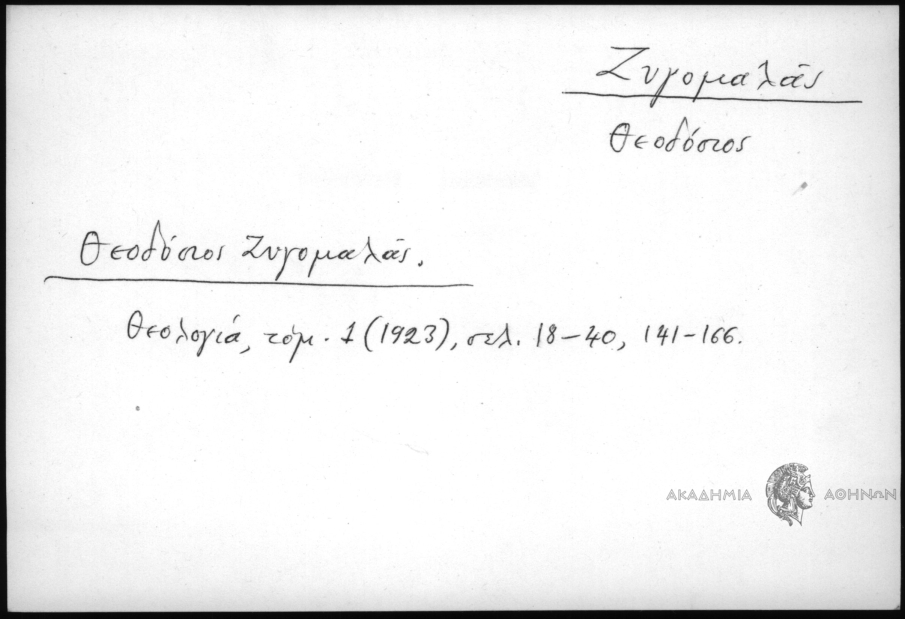 Ζυγομαλᾶς
Θεοδόσιος
Θεοδόσιος Ζυγομαλᾶς.
Θεολογιά, τόμ. 1 (1923), σελ. 18-40, 141-166.
ΑΚΑΔΗΜΙΑ ΑΘΗΝΩΝ